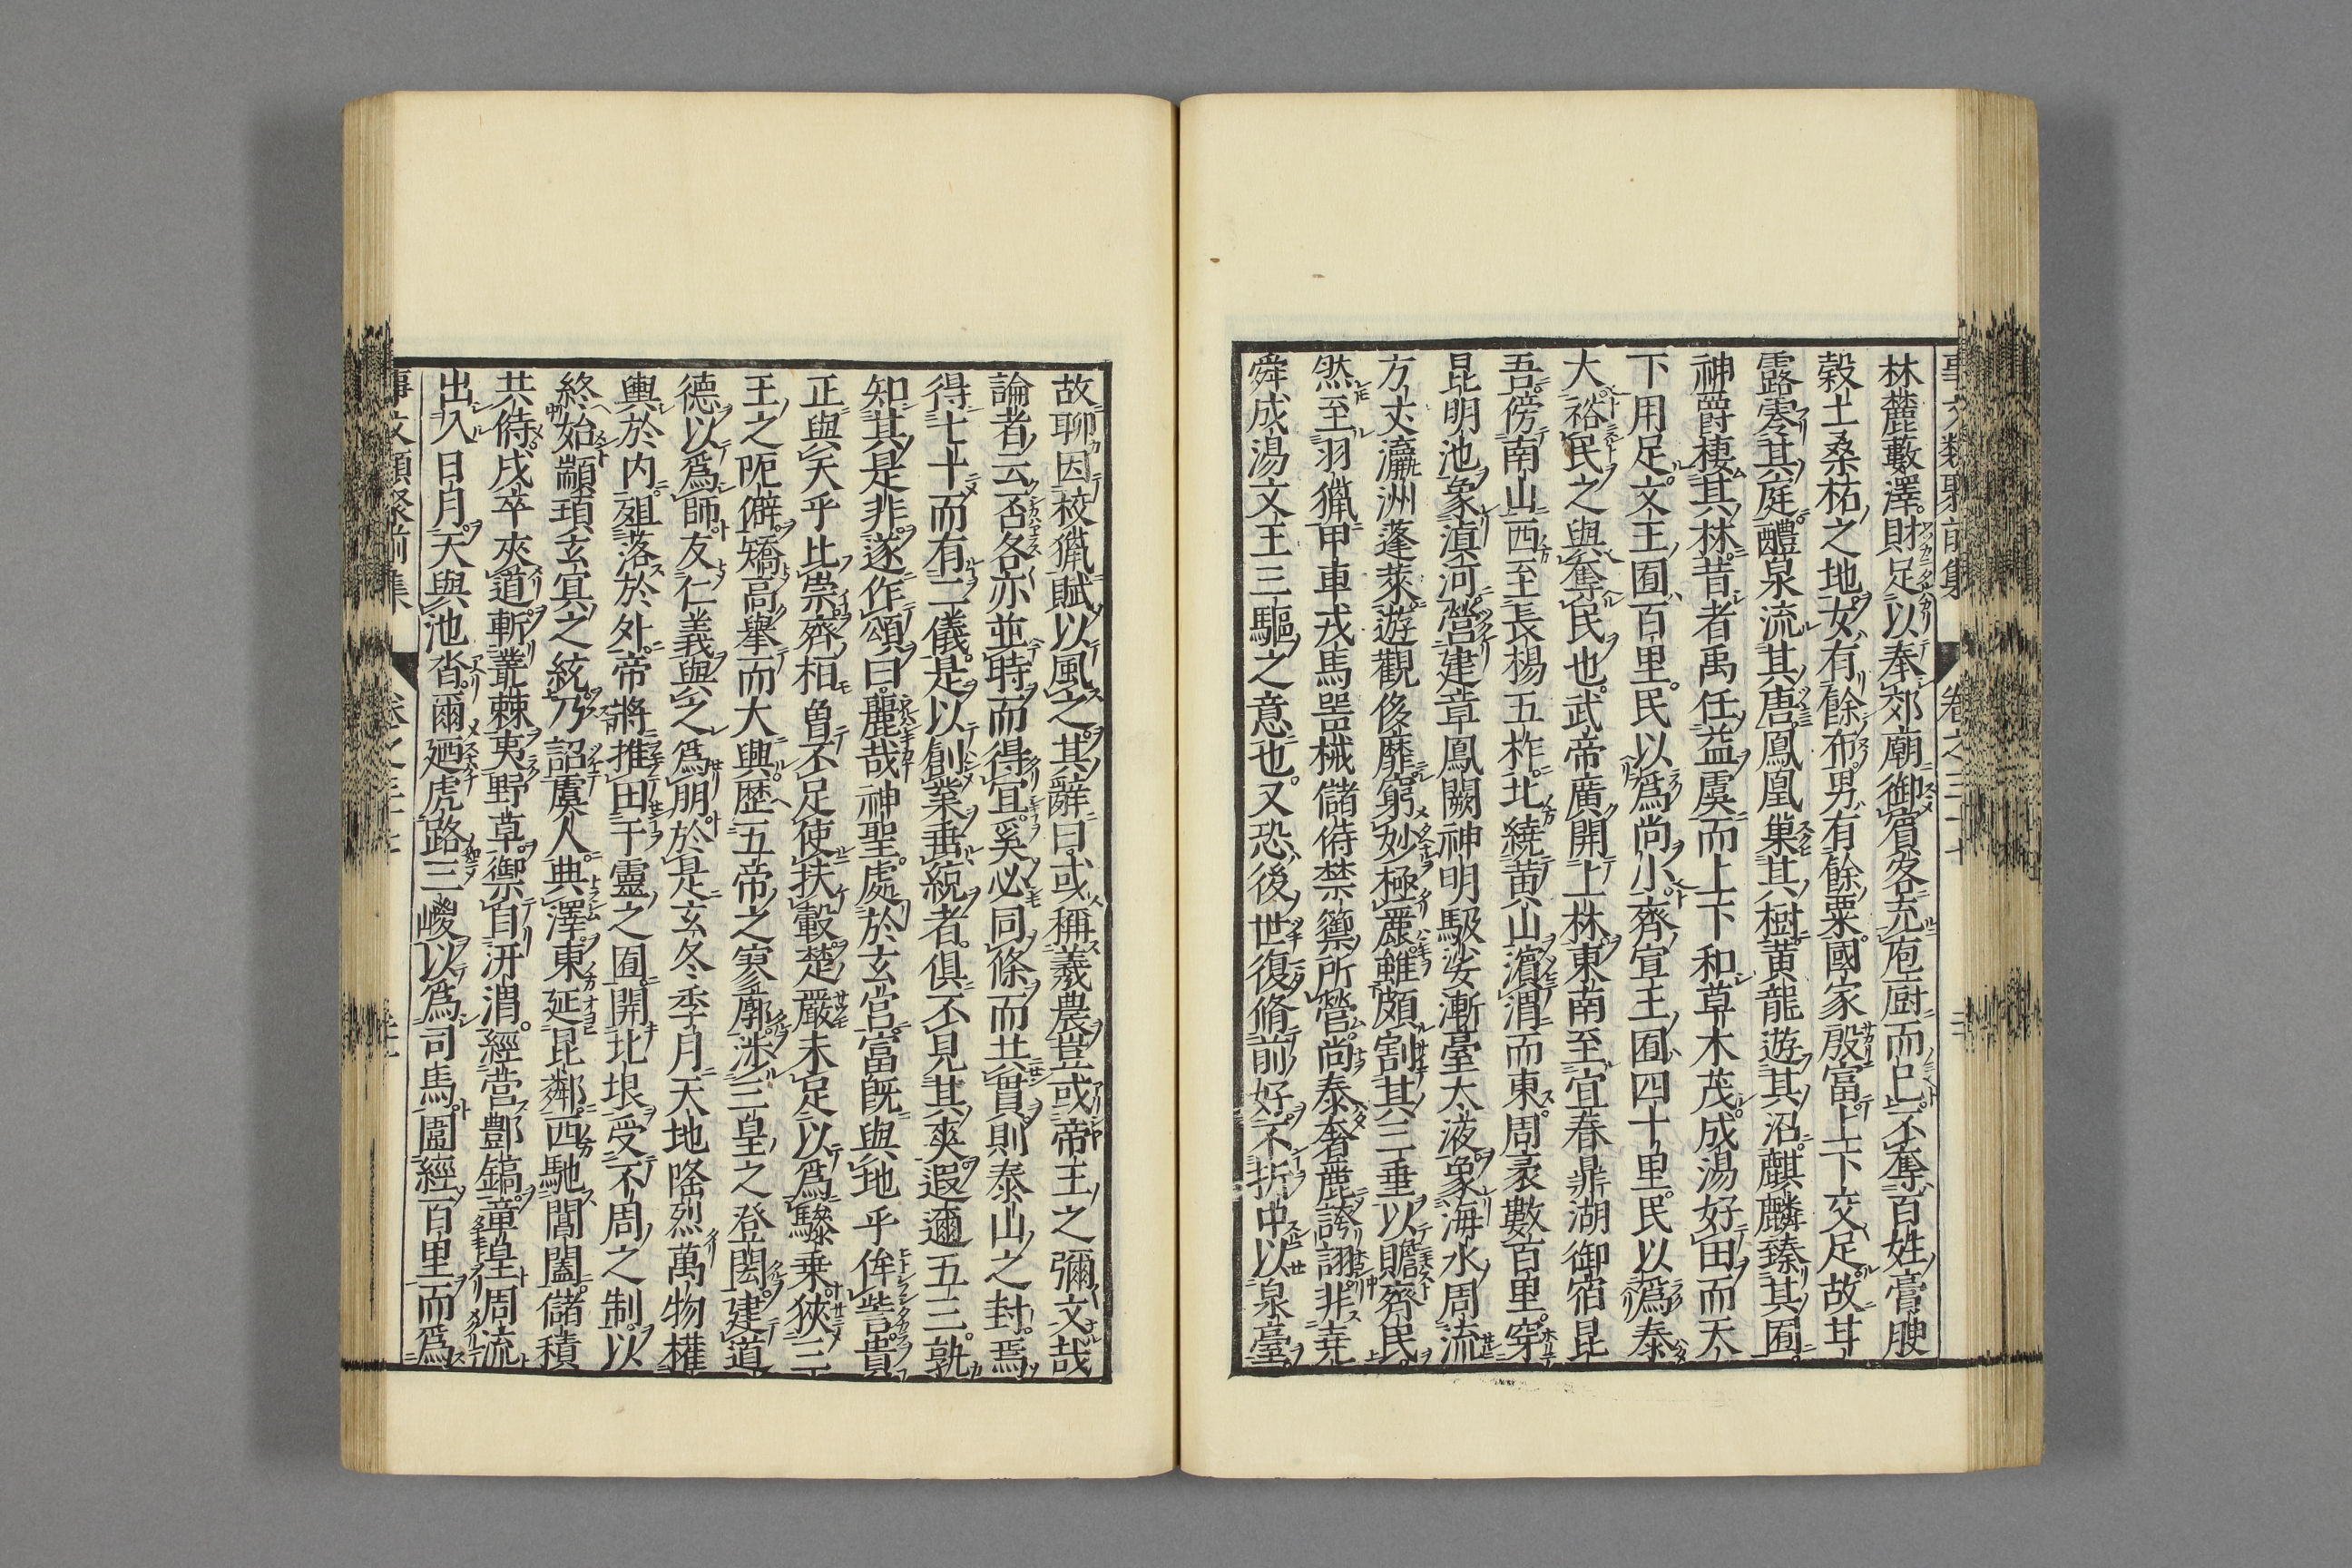 林麓藪澤財足以奉郊廟御賓客充庖厨而已不奪百姓膏腴
穀土桑柘之地女有餘布男有餘粟國家殷富上下交足故甘
露零其庭醴泉流其唐鳳凰巢其樹黄龍遊其沼麒麟臻其囿
神爵棲其林昔者禹任益虞而上下和草木茂成湯好田而天
下用足文王囿百里民以爲尚小齊宣王囿四十里民以爲泰
大裕民之與奪民也武帝廣開上林東南至宜春鼎湖御宿昆
吾傍南山西至長楊五柞北繞黄山濱渭而東周袤數百里穿
昆明池象滇河營建章鳳闕神明馺娑漸臺太液象海水周流
方丈瀛洲蓬萊遊觀侈靡窮妙極麗雖頗割其三垂以贍齊民
然至羽獵甲車戎馬噐械儲偫禁籞所營尚泰奢麗誇詡非堯
舜成湯文王三驅之意也又恐後世復脩前好不折中以泉臺
故聊因校獵賦以風之其辭曰或稱羲農豈或帝王之彌文哉
論者云否各亦並時而得宜奚必同條而共貫則泰山之封焉
得七十而有二儀是以創業垂統者俱不見其爽遐邇五三孰
知其是非遂作頌曰麗哉神聖處於玄宫富既與地乎侔訾貴
正與天乎比崇齊桓曽不足使扶轂楚嚴未足以爲驂乗狹三
王之阨僻矯高舉而大興歴五帝之寥廓涉三皇之登閎建道
德以爲師友仁義與之爲朋於是玄冬季月天地隆烈萬物權
輿於内徂落於外帝將推田于靈之囿開北垠受不周之制以
終始顓頊玄冥之統乃詔虞人典澤東延昆鄰西馳閶闔儲積
共偫戍卒夾道斬叢棘夷野草禦自汧渭經營酆鎬章皇周流
出入日月天與地沓爾廼虎路三嵕以爲司馬圍經百里而爲